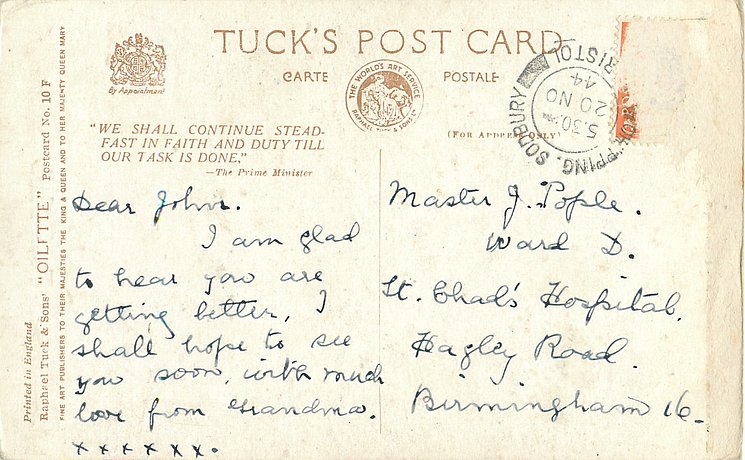 TUCK'S POST CARD
CARTE POSTALE
By Appointment
THE WORLD'S ART SERVICE
RAPHAEL TUCK & SONS LTD
(FOR ADDRESS ONLY)
"WE SHALL CONTINUE STEAD-
FAST IN FAITH AND DUTY TILL
OUR TASK IS DONE."
—The Prime Minister
PPING. SODBURY
RISTOL
5.30 PM
20 NO
44
Printed in England
Raphael Tuck & Sons' "OILETTE" Postcard No. 10 F
FINE ART PUBLISHERS TO THEIR MAJESTIES THE KING & QUEEN AND TO HER MAJESTY QUEEN MARY
Dear John.
I am glad
to hear you are
getting better, I
shall hope to see
you soon, with much
love from Grandma.
x x x x x x.
Master J. Pople.
Ward D.
St. Chad's Hospital.
Hagley Road.
Birmingham 16.